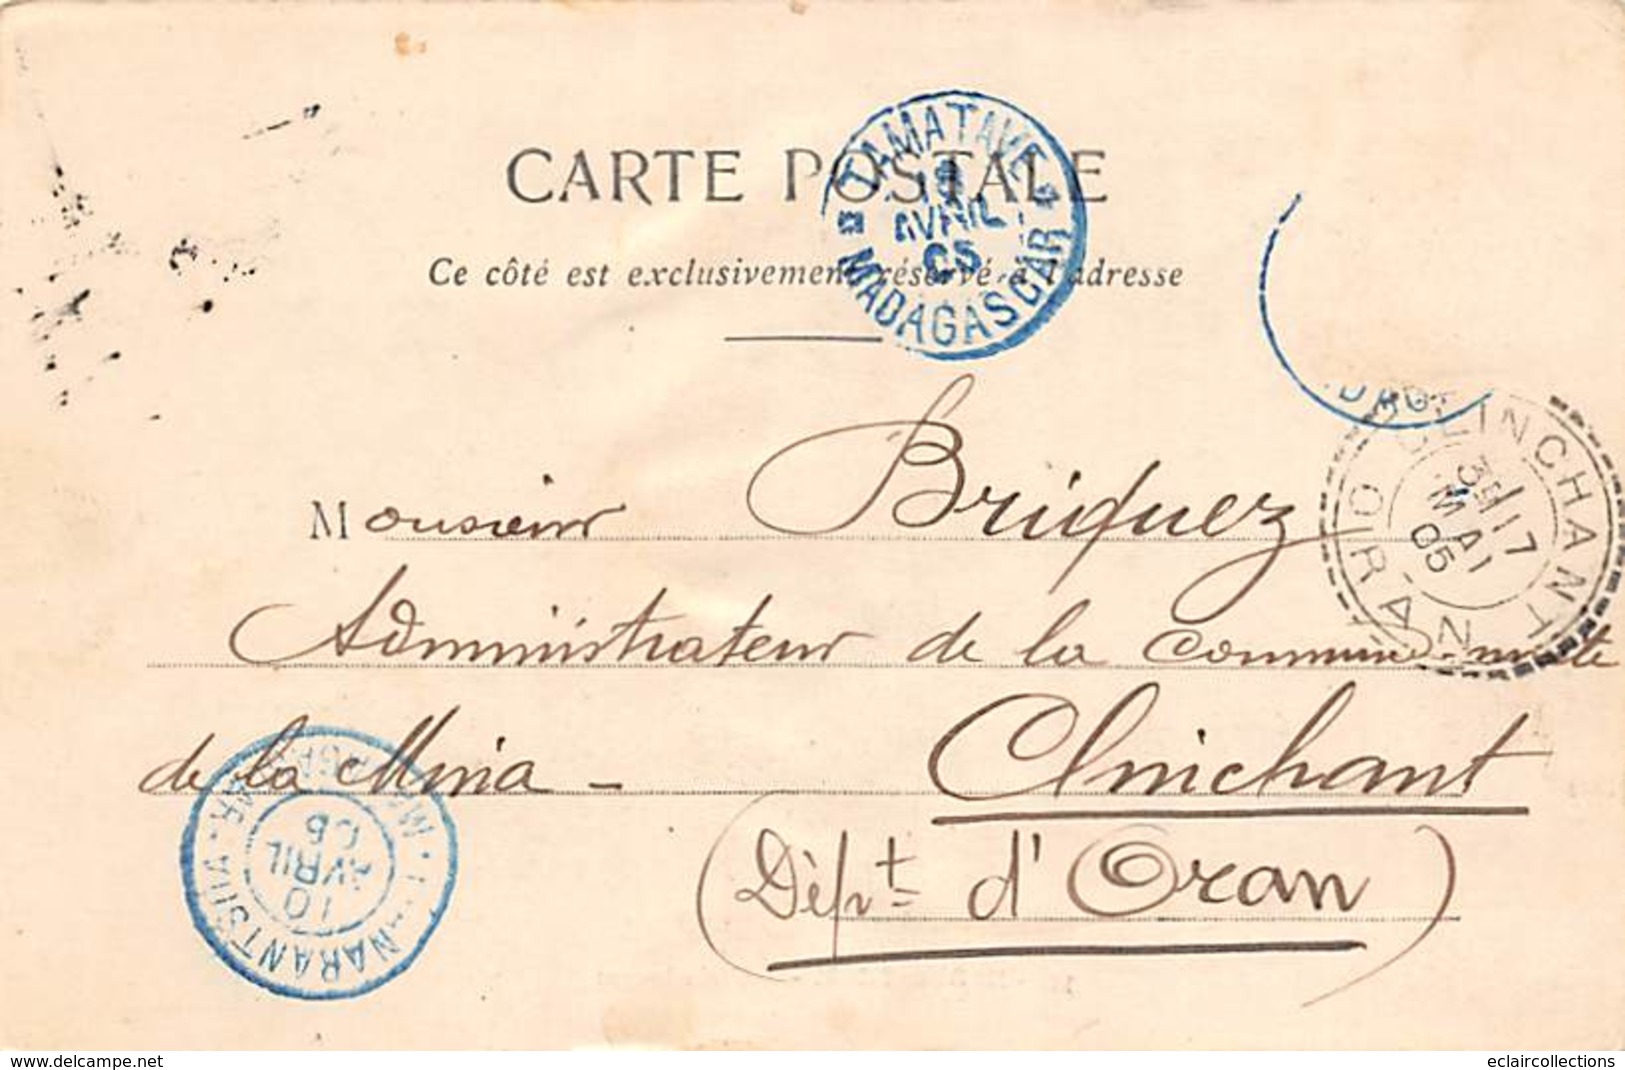 CARTE POSTALE
Ce côté est exclusivement réservé à l'adresse
TAMATAVE
18
AVRIL
05
MADAGASCAR
CLINCHANT
3E/17
MAI
05
ORAN
Monsieur Briquez
Administrateur de la commune mixte
de la Mina - Clinchant
(Dépt d'Oran)
10
AVRIL
05
www.delcampe.net
eclaircollections